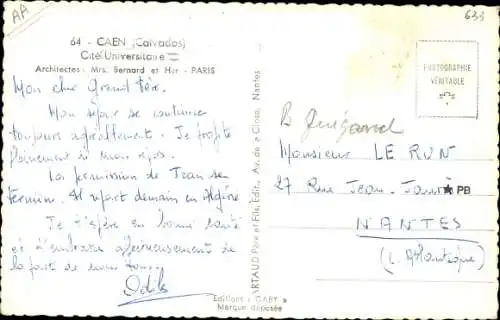 AA
633
64 - CAEN (Calvados)
Cité Universitaire
Architectes: Mrs. Bernard et Hur - PARIS
PHOTOGRAPHIE
VÉRITABLE
Mon cher Grand Père.
Mon séjour se continue
toujours agréablement. Je profite
pleinement de mon repos.
La permission de Jean se
termine. Il repart demain en Algérie
Je t'espère en bonne santé
et t'embrasse affectueusement de
la part de nous tous.
Odile
ARTAUD Père et Fils, Edit., Av. de la Close, Nantes
Monsieur LE RUN
27 Rue Jean
PB
NANTES
(L. Atlantique)
Editions "GABY"
Marque déposée